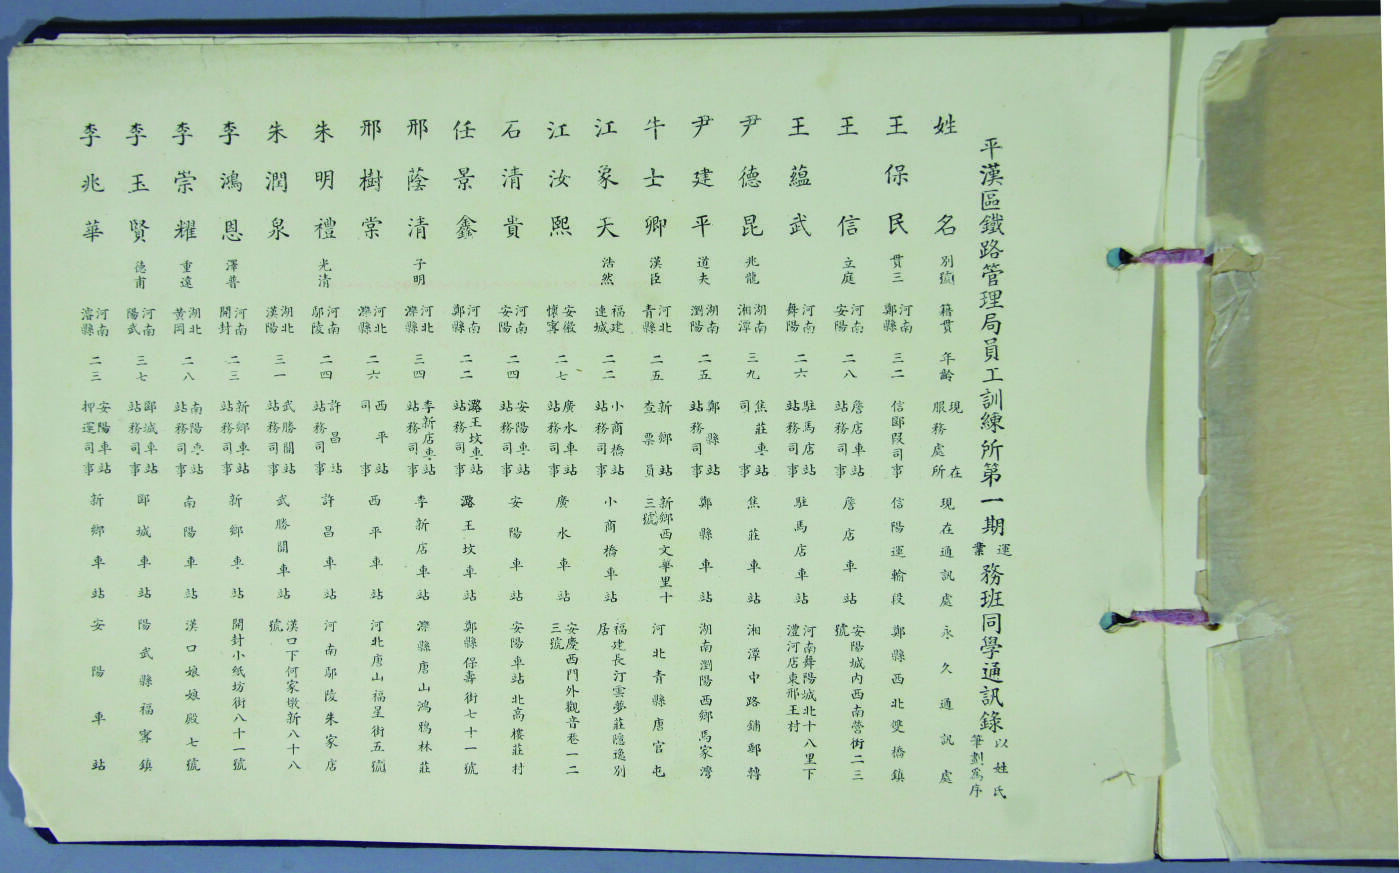 平漢區鐵路管理局員工訓練所第一期運業務班同學通訊錄以姓氏筆劃為序
姓名 別號 籍貫 年齡 現在服務處所 現在通訊處 永久通訊處
王保民 貫三 河南鄭縣 三二 信郾段司事 信陽運輸段 鄭縣西北雙橋鎮
王信 立庭 河南安陽 二八 詹店車站站務司事 詹店車站 安陽城內西南營街二三號
王蘊武 河南舞陽 二六 駐馬店站站務司事 駐馬店車站 河南舞陽城北十八里下澧河店東邢王村
尹德昆 兆龍 湖南湘潭 三九 焦莊車站司事 焦莊車站 湘潭中路鋪郵轉
尹建平 道夫 湖南瀏陽 二五 鄭縣站站務司事 鄭縣車站 湖南瀏陽西鄉馬家灣
牛士卿 漢臣 河北青縣 二五 新鄉站查票員 新鄉西文華里十三號 河北青縣唐官屯
江象天 浩然 福建連城 二二 小商橋站站務司事 小商橋車站 福建長汀雲夢莊隱逸別居
江汝熙 安徽懷寧 二七 廣水車站站務司事 廣水車站 安慶西門外觀音巷一二三號
石清貴 河南安陽 二四 安陽車站站務司事 安陽車站 安陽車站北高樓莊村
任景鑫 河南鄭縣 二二 潞王坟車站站務司事 潞王坟車站 鄭縣保壽街七十一號
邢蔭清 子明 河北灤縣 三四 李新店車站站務司事 李新店車站 灤縣唐山鴻鴉林莊
邢樹棠 河北灤縣 二六 西平站司事 西平車站 河北唐山福星街五號
朱明禮 光清 河南鄢陵 二四 許昌站站務司事 許昌車站 河南鄢陵朱家店
朱潤泉 湖北漢陽 三一 武勝關站站務司事 武勝關車站 漢口下何家墩新八十八號
李鴻恩 澤普 河南開封 二三 新鄉車站站務司事 新鄉車站 開封小紙坊街八十一號
李崇耀 重遠 湖北黃岡 二八 南陽車站站務司事 南陽車站 漢口娘娘殿七號
李玉賢 德甫 河南陽武 三七 郾城車站站務司事 郾城車站 陽武縣福寧鎮
李兆華 河南濬縣 二三 安陽車站押運司事 新鄉車站 安陽車站